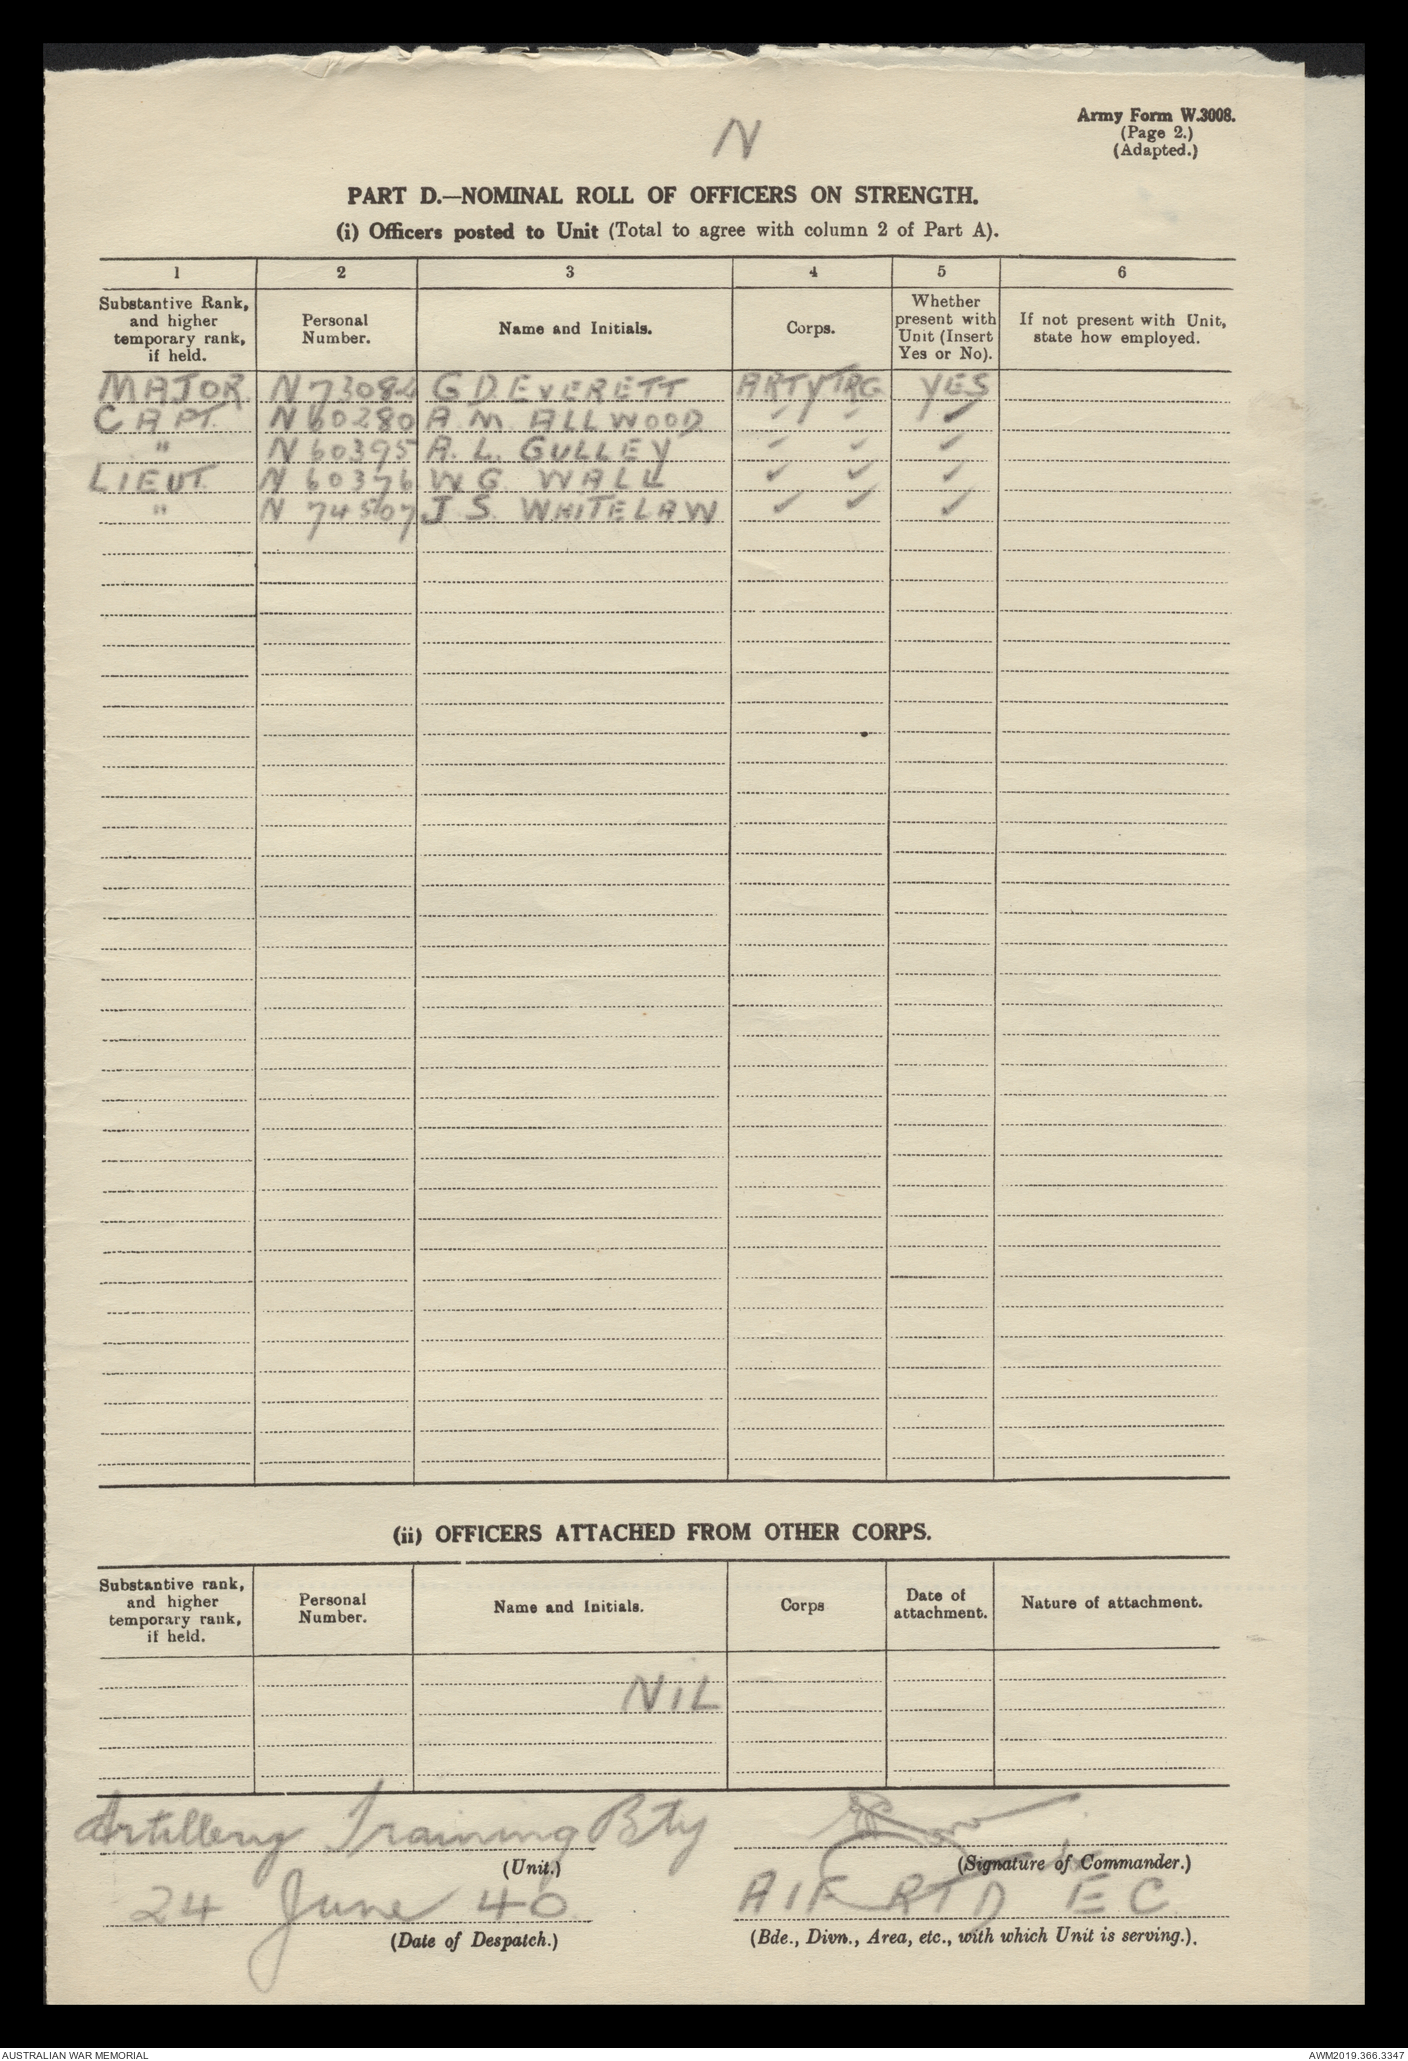 N
Army Form W.3008.
(Page 2.)
(Adapted.)
PART D.—NOMINAL ROLL OF OFFICERS ON STRENGTH.
(i) Officers posted to Unit (Total to agree with column 2 of Part A).
1 2 3 4 5 6
Substantive Rank, and higher temporary rank, if held. Personal Number. Name and Initials. Corps. Whether present with Unit (Insert Yes or No). If not present with Unit, state how employed.
MAJOR. N 73084 G D. EVERETT ARTY TRG YES
CAPT. N 60280 A. M. ALLWOOD ✓ ✓ ✓
" N 60395 A. L. GULLEY ✓ ✓ ✓
LIEUT. N 60376 W G. WALL ✓ ✓ ✓
" N 74507 J S. WHITELAW ✓ ✓ ✓
(ii) OFFICERS ATTACHED FROM OTHER CORPS.
Substantive rank, and higher temporary rank, if held. Personal Number. Name and Initials. Corps Date of attachment. Nature of attachment.
NIL
Artillery Training Bty
(Unit.) (Signature of Commander.)
24 June 40 AIF RTD EC
(Date of Despatch.) (Bde., Divn., Area, etc., with which Unit is serving.).
AUSTRALIAN WAR MEMORIAL AWM2019.366.3347